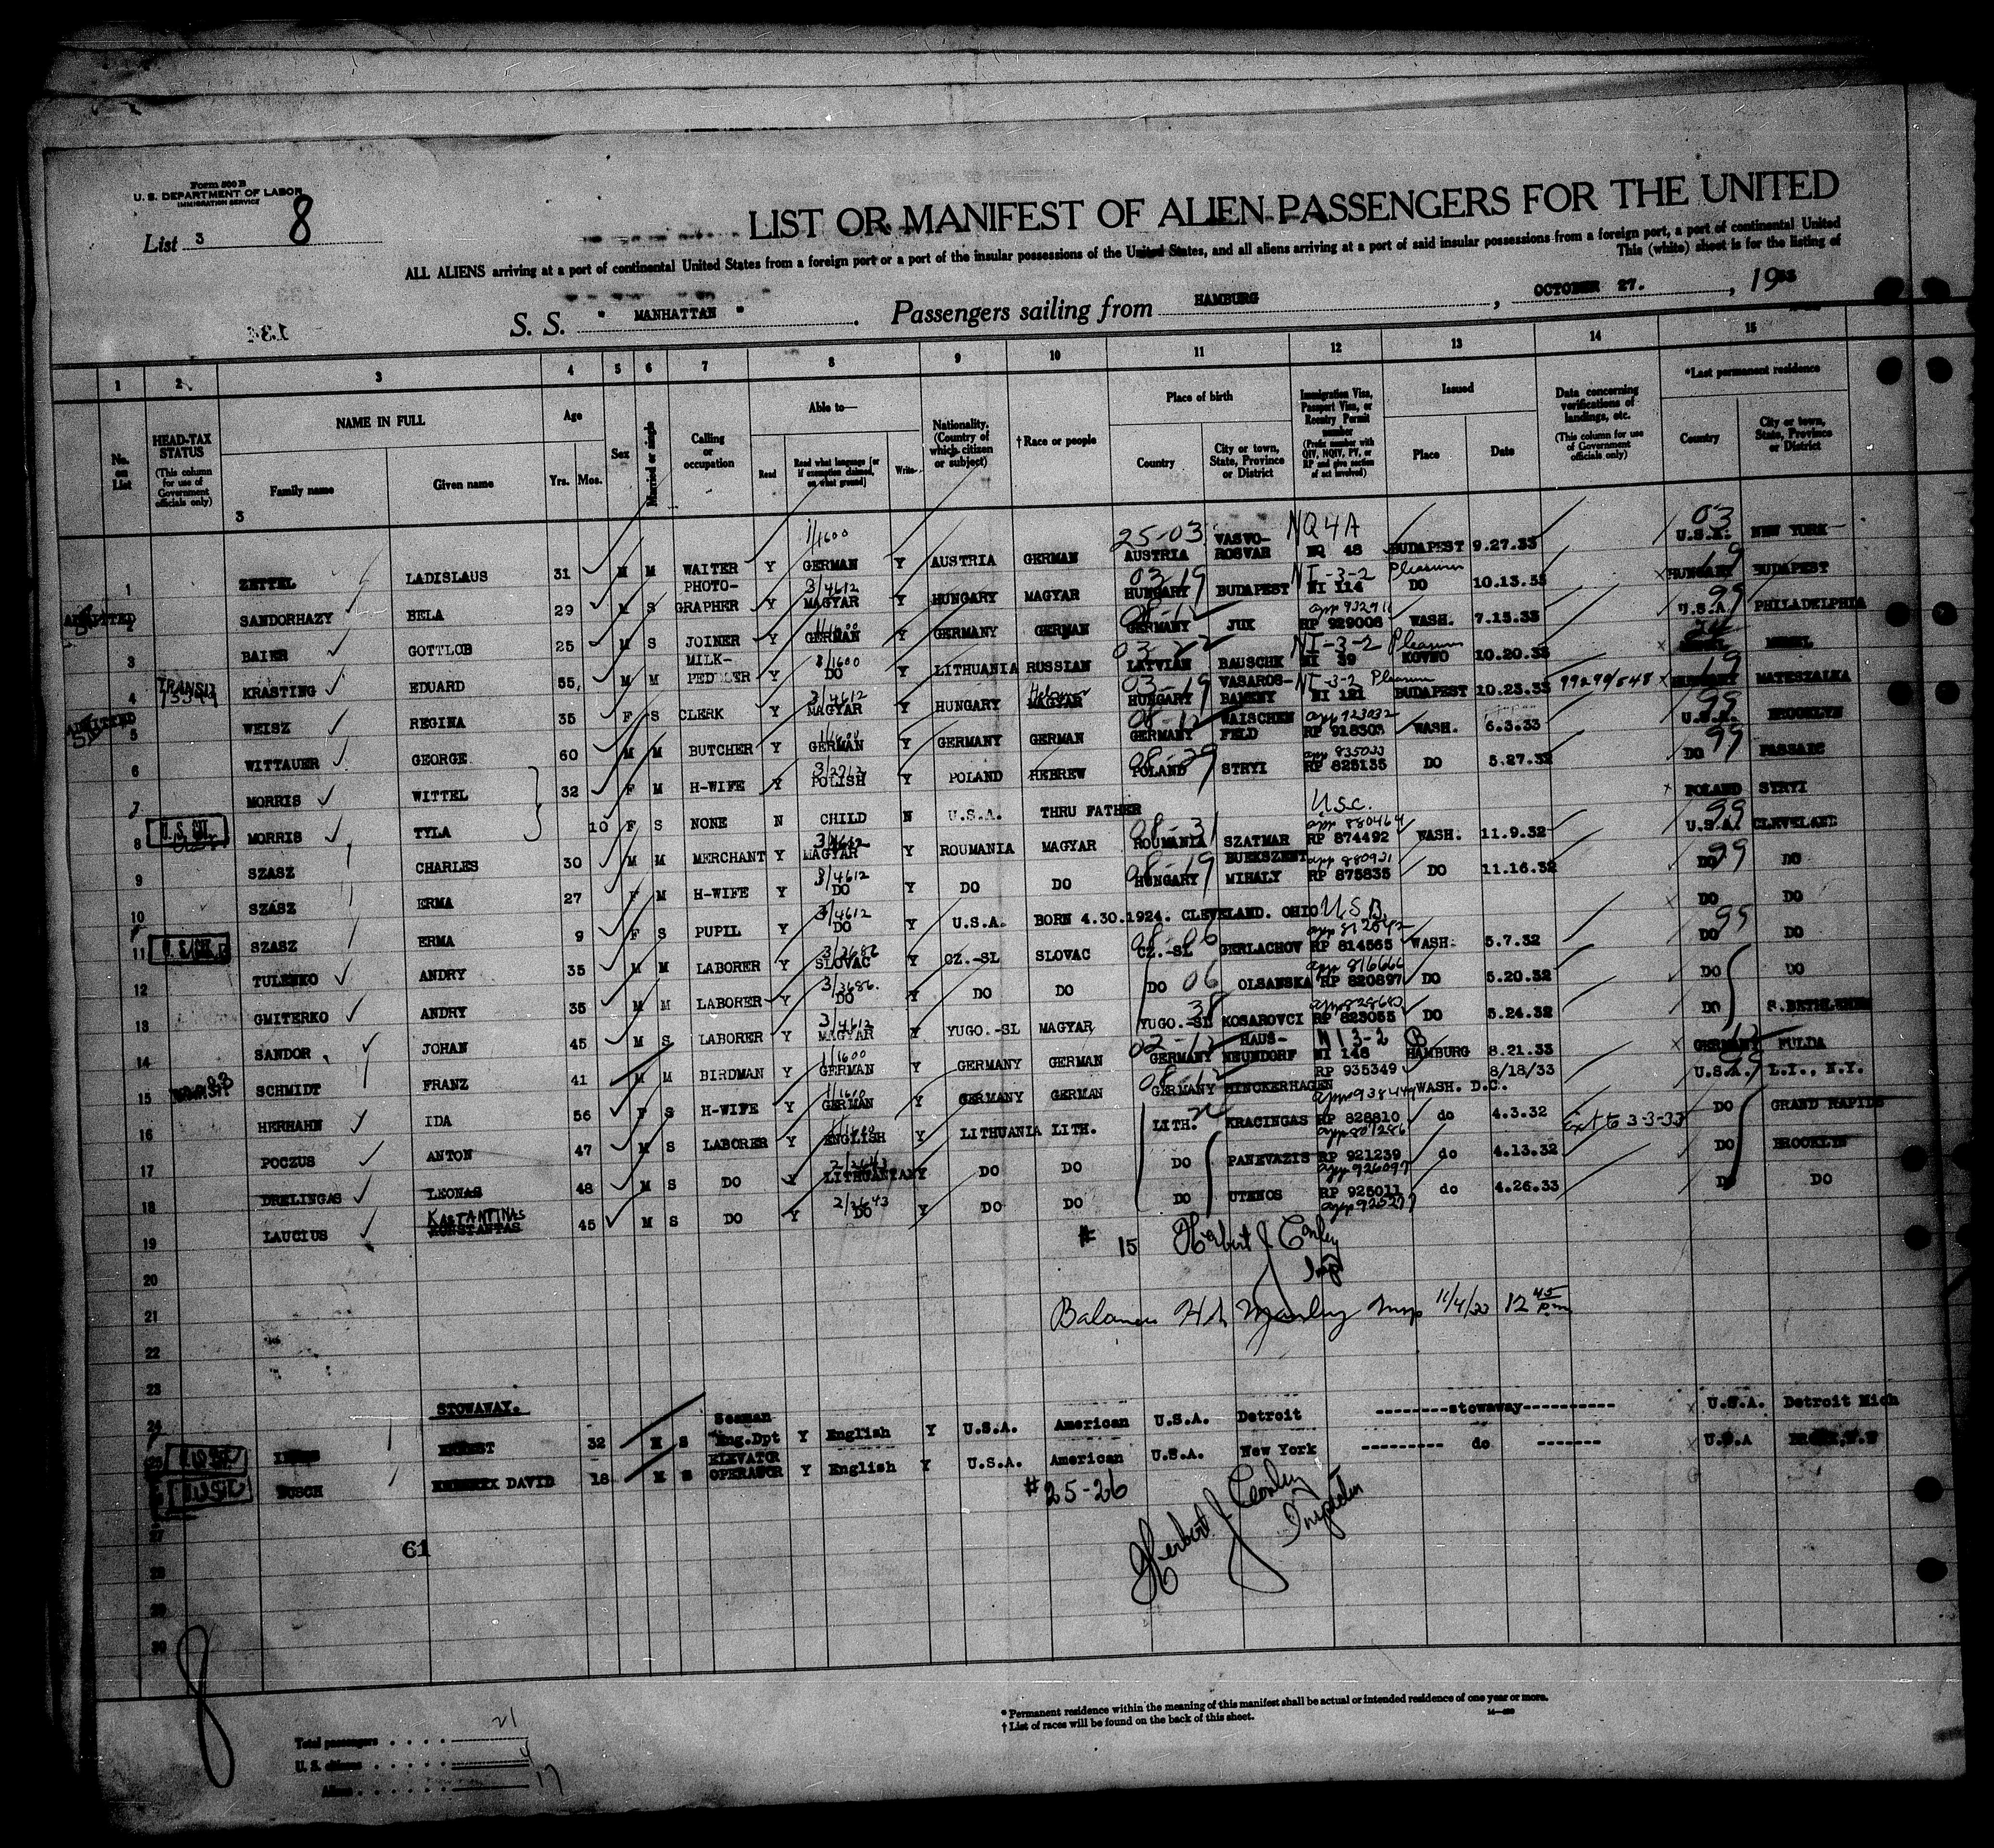 Form 500 B
U. S. DEPARTMENT OF LABOR
IMMIGRATION SERVICE
List 3 8
LIST OR MANIFEST OF ALIEN PASSENGERS FOR THE UNITED
ALL ALIENS arriving at a port of continental United States from a foreign port or a port of the insular possessions of the United States, and all aliens arriving at a port of said insular possessions from a foreign port, a port of continental United
This (white) sheet is for the listing of
S. S. " MANHATTAN " . Passengers sailing from HAMBURG , OCTOBER 27. , 1933
1 2 3 4 5 6 7 8 9 10 11 12 13 14 15
No. on List
HEAD-TAX STATUS (This column for use of Government officials only)
NAME IN FULL
Family name Given name
Age Yrs. Mos.
Sex
Married or single
Calling or occupation
Able to— Read Read what language [or if exemption claimed, on what ground] Write
Nationality. (Country of which citizen or subject)
† Race or people
Place of birth Country City or town, State, Province or District
Immigration Visa, Passport Visa, or Reentry Permit number (Prefix number with QIV, NQIV, PV, or RP and give section of act involved)
Issued Place Date
Data concerning verifications of landings, etc. (This column for use of Government officials only)
*Last permanent residence Country City or town, State, Province or District
3
1/1600 25-03 NQ4A 03
1 ZETTEL LADISLAUS 31 M M WAITER Y GERMAN Y AUSTRIA GERMAN AUSTRIA VASVO-ROSVAR NQ 48 BUDAPEST 9.27.33 U.S.A. NEW YORK
3/4612 03 19 NI-3-2 Pleasure 19
ADMITTED 2 SANDORHAZY BELA 29 M S PHOTO-GRAPHER Y MAGYAR Y HUNGARY MAGYAR HUNGARY BUDAPEST NI 114 DO 10.13.33 HUNGARY BUDAPEST
1/1600 08-12 app 932911 99
3 BAIER GOTTLOB 25 M S JOINER Y GERMAN Y GERMANY GERMAN GERMANY JUX RP 929008 WASH. 7.15.33 U.S.A. PHILADELPHIA
8/1600 03 22 NI-3-2 Pleasure
TRANSIT 4 KRASTING EDUARD 55 M M MILK-PEDDLER Y DO Y LITHUANIA RUSSIAN LATVIAN BAUSCHK NI 39 KOVNO 10.20.33 MEMEL
3/4612 Hebrew 03-19 NI-3-2 Pleasure 99299/648 19
ADMITTED 5 WEISZ REGINA 35 F S CLERK Y MAGYAR Y HUNGARY MAGYAR HUNGARY VASAROS-BAMENY NI 121 BUDAPEST 10.23.33 HUNGARY MATESZALKA
1/1600 08-12 app 923032 99
6 WITTAUER GEORGE 60 M M BUTCHER Y GERMAN Y GERMANY GERMAN GERMANY WAISCHENFELD RP 918303 WASH. 6.3.33 U.S.A. BROOKLYN
08-29 app 835033 99
7 MORRIS WITTEL 32 F M H-WIFE Y POLISH Y POLAND HEBREW POLAND STRYI RP 825135 DO 5.27.32 DO PASSAIC
U.S.C.
8 MORRIS TYLA 10 F S NONE N CHILD N U.S.A. THRU FATHER POLAND STRYI
3/4612 08-31 app 880464 99
9 SZASZ CHARLES 30 M M MERCHANT Y MAGYAR Y ROUMANIA MAGYAR ROUMANIA SZATMAR RP 874492 WASH. 11.9.32 U.S.A. CLEVELAND
3/4612 08-19 app 880921 99
10 SZASZ ERMA 27 F M H-WIFE Y DO Y DO DO HUNGARY BUEKSZENTMIHALY RP 875835 DO 11.16.32 DO DO
3/4612 U.S.B.
11 SZASZ ERMA 9 F S PUPIL Y DO Y U.S.A. BORN 4.30.1924. CLEVELAND. OHIO DO DO
3/3686 08-06 app 812842 99
12 TULENKO ANDRY 35 M M LABORER Y SLOVAC Y CZ.-SL SLOVAC CZ.-SL GERLACHOV RP 814565 WASH. 5.7.32 DO DO
3/3686. 06 app 816666
13 GMITERKO ANDRY 35 M M LABORER Y DO Y DO DO DO OLSANSKA RP 820897 DO 5.20.32 DO DO
3/4612 38 app 828683
14 SANDOR JOHAN 45 M S LABORER Y MAGYAR Y YUGO.-SL MAGYAR YUGO.-SL KOSAROVCI RP 823055 DO 5.24.32 DO S.BETHLEHEM
1/1600 02-12 NI 3-2 B 12
15 SCHMIDT FRANZ 41 M M BIRDMAN Y GERMAN Y GERMANY GERMAN GERMANY HAUS-NEUNDORF NI 148 HAMBURG 8.21.33 GERMANY FULDA
1/1600 08-12 app 938449 99
16 HERHAHN IDA 56 F S H-WIFE Y GERMAN Y GERMANY GERMAN GERMANY HINCKERHAGEN RP 935349 WASH. D.C. 8/18/33 U.S.A. L.I., N.Y.
1/1600 app 801286
17 POCZUS ANTON 47 M S LABORER Y ENGLISH Y LITHUANIA LITH. LITH. KRACINGAS RP 828810 do 4.3.32 Ext to 3-3-33 DO GRAND RAPIDS
2/2643 app 926097
18 DRELINGAS LEONAS 48 M S DO Y LITHUANIANY DO DO DO PANEVAZIS RP 921239 do 4.13.32 DO BROOKLYN
2/2643 app 92527
19 LAUCIUS KASTANTINAS KONSTANTAS 45 M S DO Y DO Y DO DO DO UTENOS RP 925011 do 4.26.33 DO DO
# 15 Herbert J. Conley Insp
20
21 Balance H.h. Manley Insp 11/4/33 12 45 pm
22
23
24 STOWAWAY.
25 ERNEST 32 M S Seaman Eng.Dpt Y English Y U.S.A. American U.S.A. Detroit --------stowaway---------- U.S.A. Detroit Mich
BUSCH DAVID 18 M S ELEVATOR OPERATOR Y English Y U.S.A. American U.S.A. New York --------- do ------- U.S.A
#25-26
Herbert J. Conley Inspector
27
61
28
29
30
8
* Permanent residence within the meaning of this manifest shall be actual or intended residence of one year or more.
† List of races will be found on the back of this sheet.
Total passengers . . . . 21
U. S. citizens . . . . . 4
Aliens . . . . . . 17